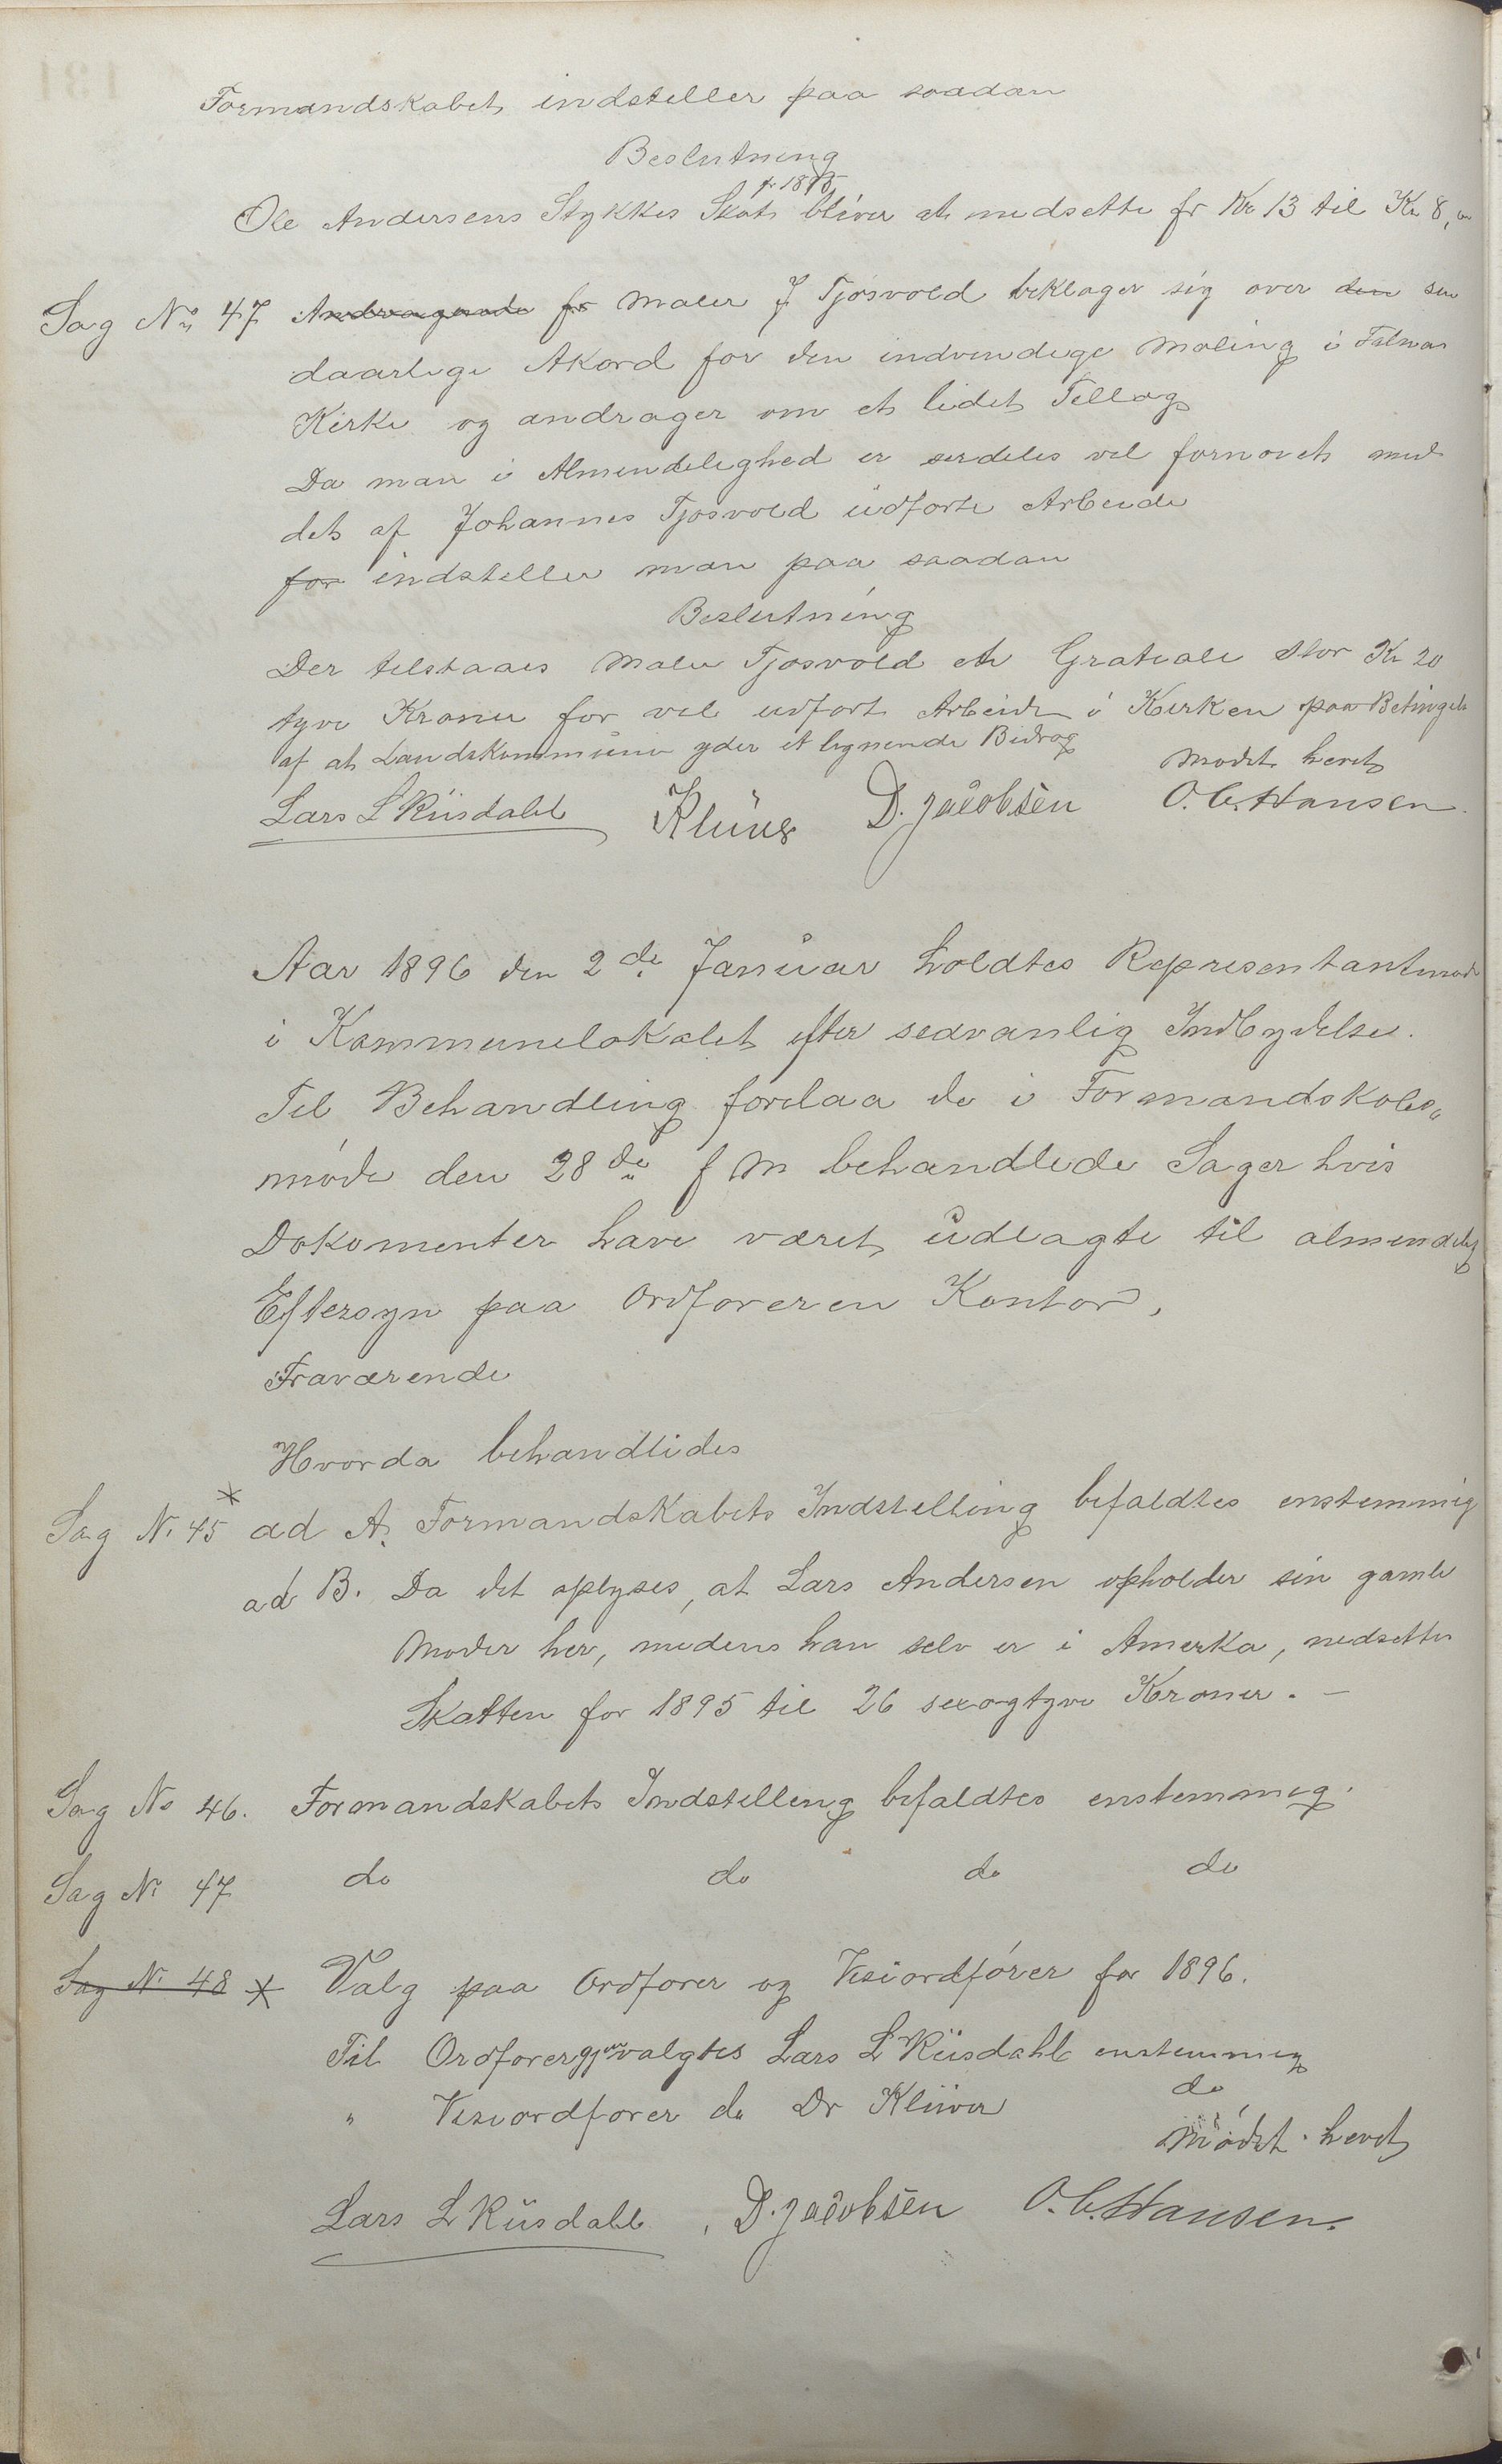 Formandskabet indstiller paa saadan
Beslutning
fr 1895
Ole Andersens Stykkes Skat bliver at nedsette fr Kr 13 til Kr 8,
Sag No 47 Andragende fr Maler J Tjøsvold beklager sig over den sin
daarlige Akord for den indvendige Maling i Falnæs
Kirke og andrager om et lidet Tillæg
Da man i Almendelighed er serdeles vel fornøiet med
det af Johannes Tjosvold udførte Arbeide
for indstiller man paa saadan
Beslutning
Der tilstaaes Maler Tjosvold et Gratiale stor Kr 20
tyve Kroner for vel udført Arbeide i Kirken paa Betingels
af at Landskommune yder et lignende Bidrag
Mødet hevet
Lars L Riisdahl Klüver D. Jacobsen O. C. Hansen.
Aar 1896 den 2de Januar holdtes Representantmøde
i Kommunelokalet efter sedvanlig Indbydelse.
Til Behandling forelaa de i Formandskabs„
møde den 28de f M behandlede Sager hvis
Dokomenter have været udlagte til almendelig
Eftersyn paa Ordføreren Kontor,
Fraværende
Hvorda behandledes
Sag N. 45 * ad A. Formandskabets Indstelling bifaldtes enstemmig
ad B. Da det oplyses, at Lars Andersen opholder sin gamle
Moder her, medens han selv er i Amerka, nedsettes
Skatten for 1895 til 26 sexogtyve Kroner. –
Sag No 46. Formandskabets Indstelling bifaldtes enstemmig.
Sag N. 47 do do do do
Sag N. 48 * Valg paa Ordfører og Visiordfører for 1896.
Til Ordfører gjenvalgtes Lars L Riisdahl enstemmig
" Visiordfører do Dr Klüver do
Mødet hevet
Lars L Riisdahl, D. Jacobsen O. C. Hansen.